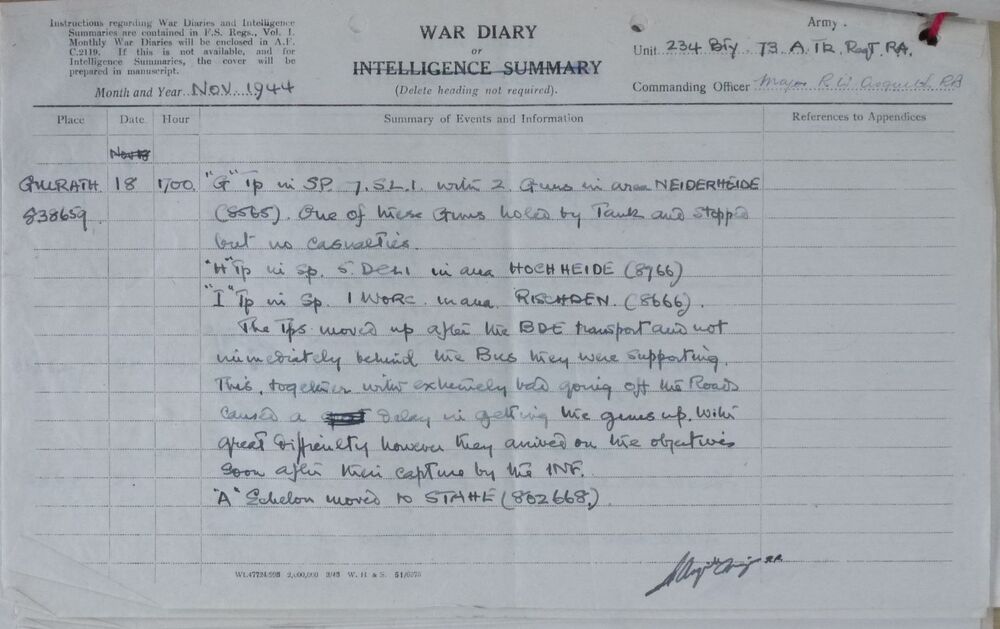 Instructions regarding War Diaries and Intelligence
Summaries are contained in F.S. Regs., Vol. I.
Monthly War Diaries will be enclosed in A.F.
C.2119. If this is not available, and for
Intelligence Summaries, the cover will be
prepared in manuscript.
Month and Year Nov. 1944
WAR DIARY
or
INTELLIGENCE SUMMARY
(Delete heading not required).
Army.
Unit 234 Bty 73 A Tk Regt. RA.
Commanding Officer Major R W RA
Place Date Hour Summary of Events and Information References to Appendices
Nov 18
GILRATH 18 1700. "G" Tp in SP 7. S.L.I. with 2 Guns in area NEIDERHEIDE
838659 (8565). One of these Guns holed by Tank and stopped
but no casualties.
"H" Tp in sp. 5. DCLI in area HOCHHEIDE (8766)
"I" Tp in Sp. 1 WORC. in area RISCHDEN. (8666).
The Tps moved up after the BDE transport and not
immediately behind the Bns they were supporting.
This, together with extremely bad going off the Roads
caused a delay in getting the guns up. With
great difficulty however they arrived on the objectives
soon after their capture by the INF.
"A" Echelon moved to STAHE (802668.)
Wt.47724/993 2,000,000 3/43 W. H & S. 51/6375
RA